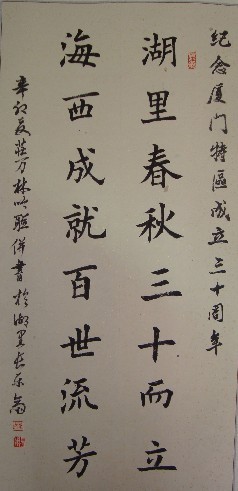 纪念厦门特區成立三十周年
湖里春秋三十而立
海西成就百世流芳
辛卯夏莊万林吟联併書於湖里長乐斋